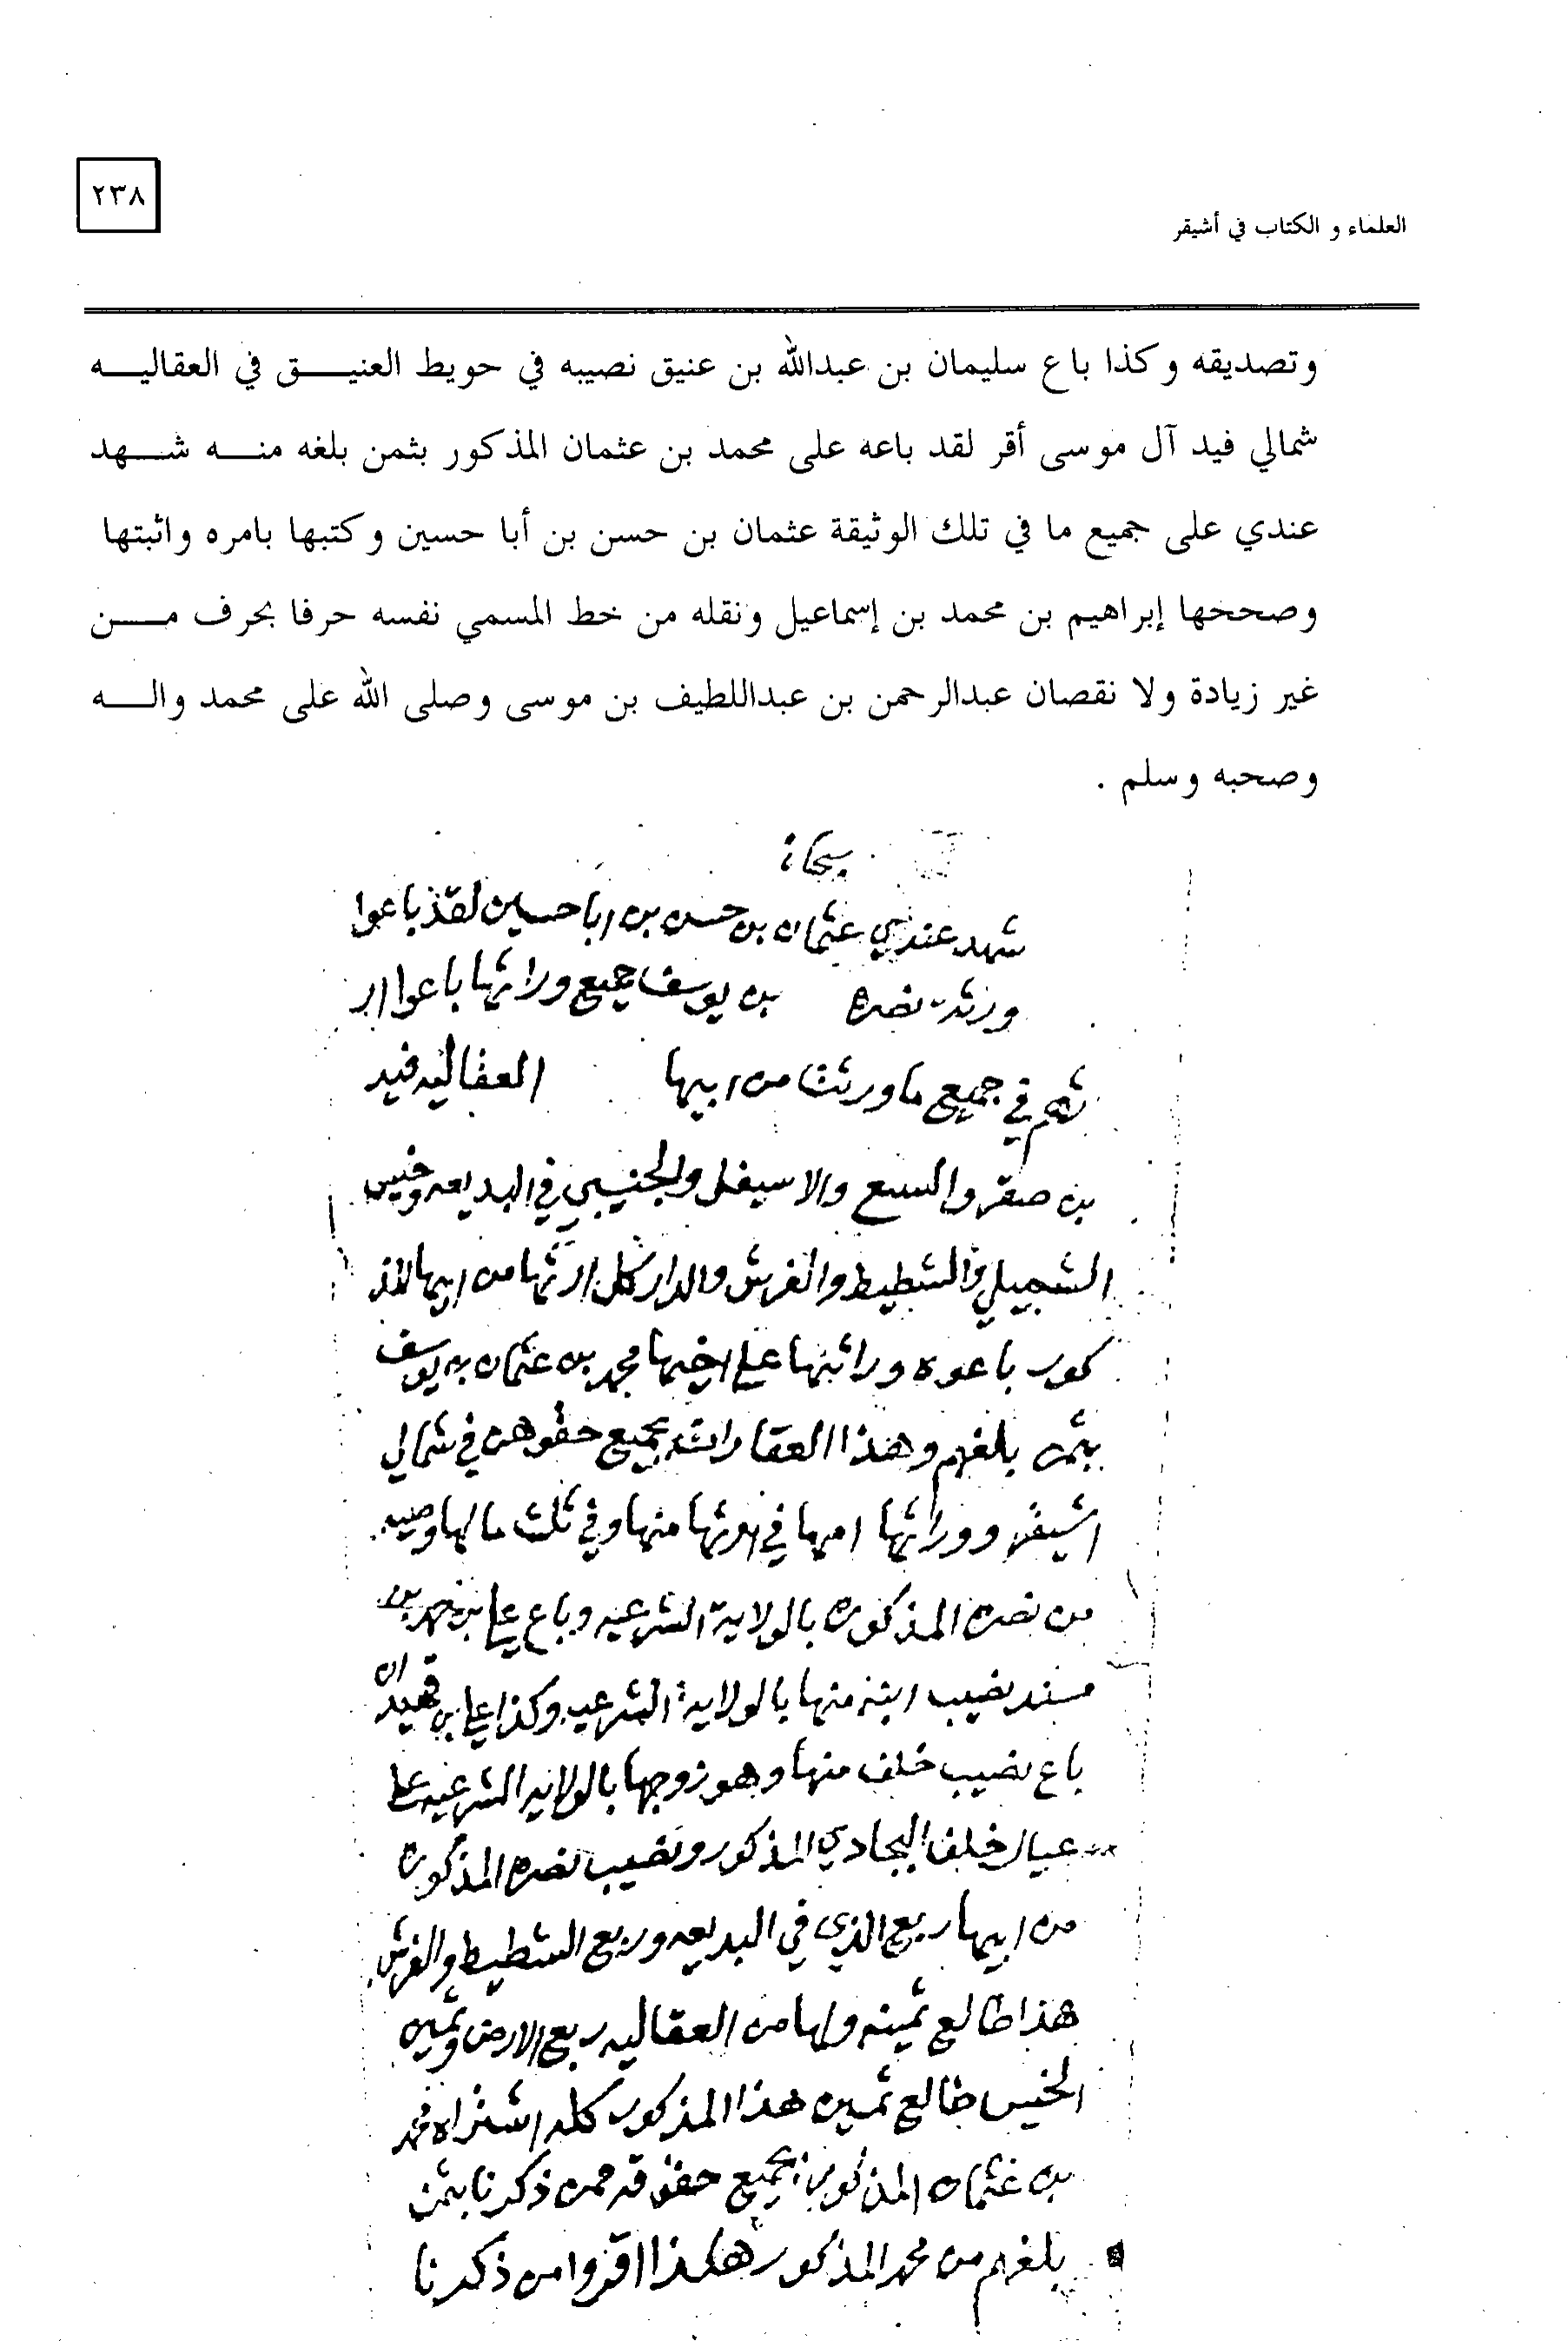 ٢٣٨
العلماء و الكتاب في أشيقر
وتصديقه وكذا باع سليمان بن عبدالله بن عنيق نصيبه في حويط العنيق في العقاليه
شمالي فيد آل موسى أقر لقد باعه على محمد بن عثمان المذكور بثمن بلغه منه شهد
عندي على جميع ما في تلك الوثيقة عثمان بن حسن بن أبا حسين وكتبها بامره واثبتها
وصححها إبراهيم بن محمد بن إسماعيل ونقله من خط المسمي نفسه حرفا بحرف من
غير زيادة ولا نقصان عبدالرحمن بن عبداللطيف بن موسى وصلى الله على محمد واله
وصحبه وسلم .
سبحانه
شهد عندي عثمان بن حسن بن ابا حسين لقد باعوا
ورثة نصره بن يوسف جميع وراثتها باعوا
في جميع ما ورثت من ابيها العقاليه فيد
بن صقر والسبع والاسيفل والجنيبي في البديعه وخيس
الشميلي والشطيط والفرش والدار كل ارثها من ابيها المذ
كور باعوه وراثتها على اخيها محمد بن عثمان بن يوسف
بثمن بلغهم وهذا العقارات بجميع حقوهن في شمالي
اشيقر ووراثتها امها في منها وفي ثلث مالها وصيه
من نصره المذكوره بالولاية الشرعيه وباع علي بن حمد بن
مسند نصيب ابنه منها بالولاية الشرعيه وكذا علي بن
باع نصيب خلف منها وهو زوجها بالولايه الشرعيه على
عيال خلف البجادي المذكور ونصيب نصره المذكوره
من ابيها ربع الذي في البديعه وربع الشطيط والفرش
هذا طالع ثمينه ولها من العقاليه ربع الارض وثمين
الخيس طالع ثمين هذا المذكور كله اشتراه محمد
بن عثمان المذكور بجميع حقوقه ممن ذكرنا بثمن
بلغهم من محمد المذكور هكذا اقروا من ذكرنا